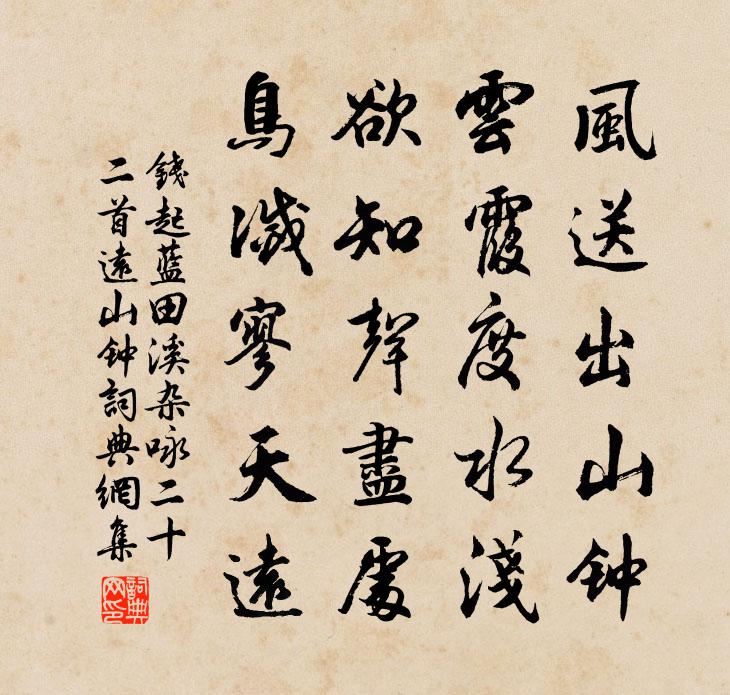 風送出山钟
雲霞度水淺
欲知聲盡處
鳥滅寥天遠
錢起藍田溪杂咏二十
二首遠山钟詞典網集
詞典
网印